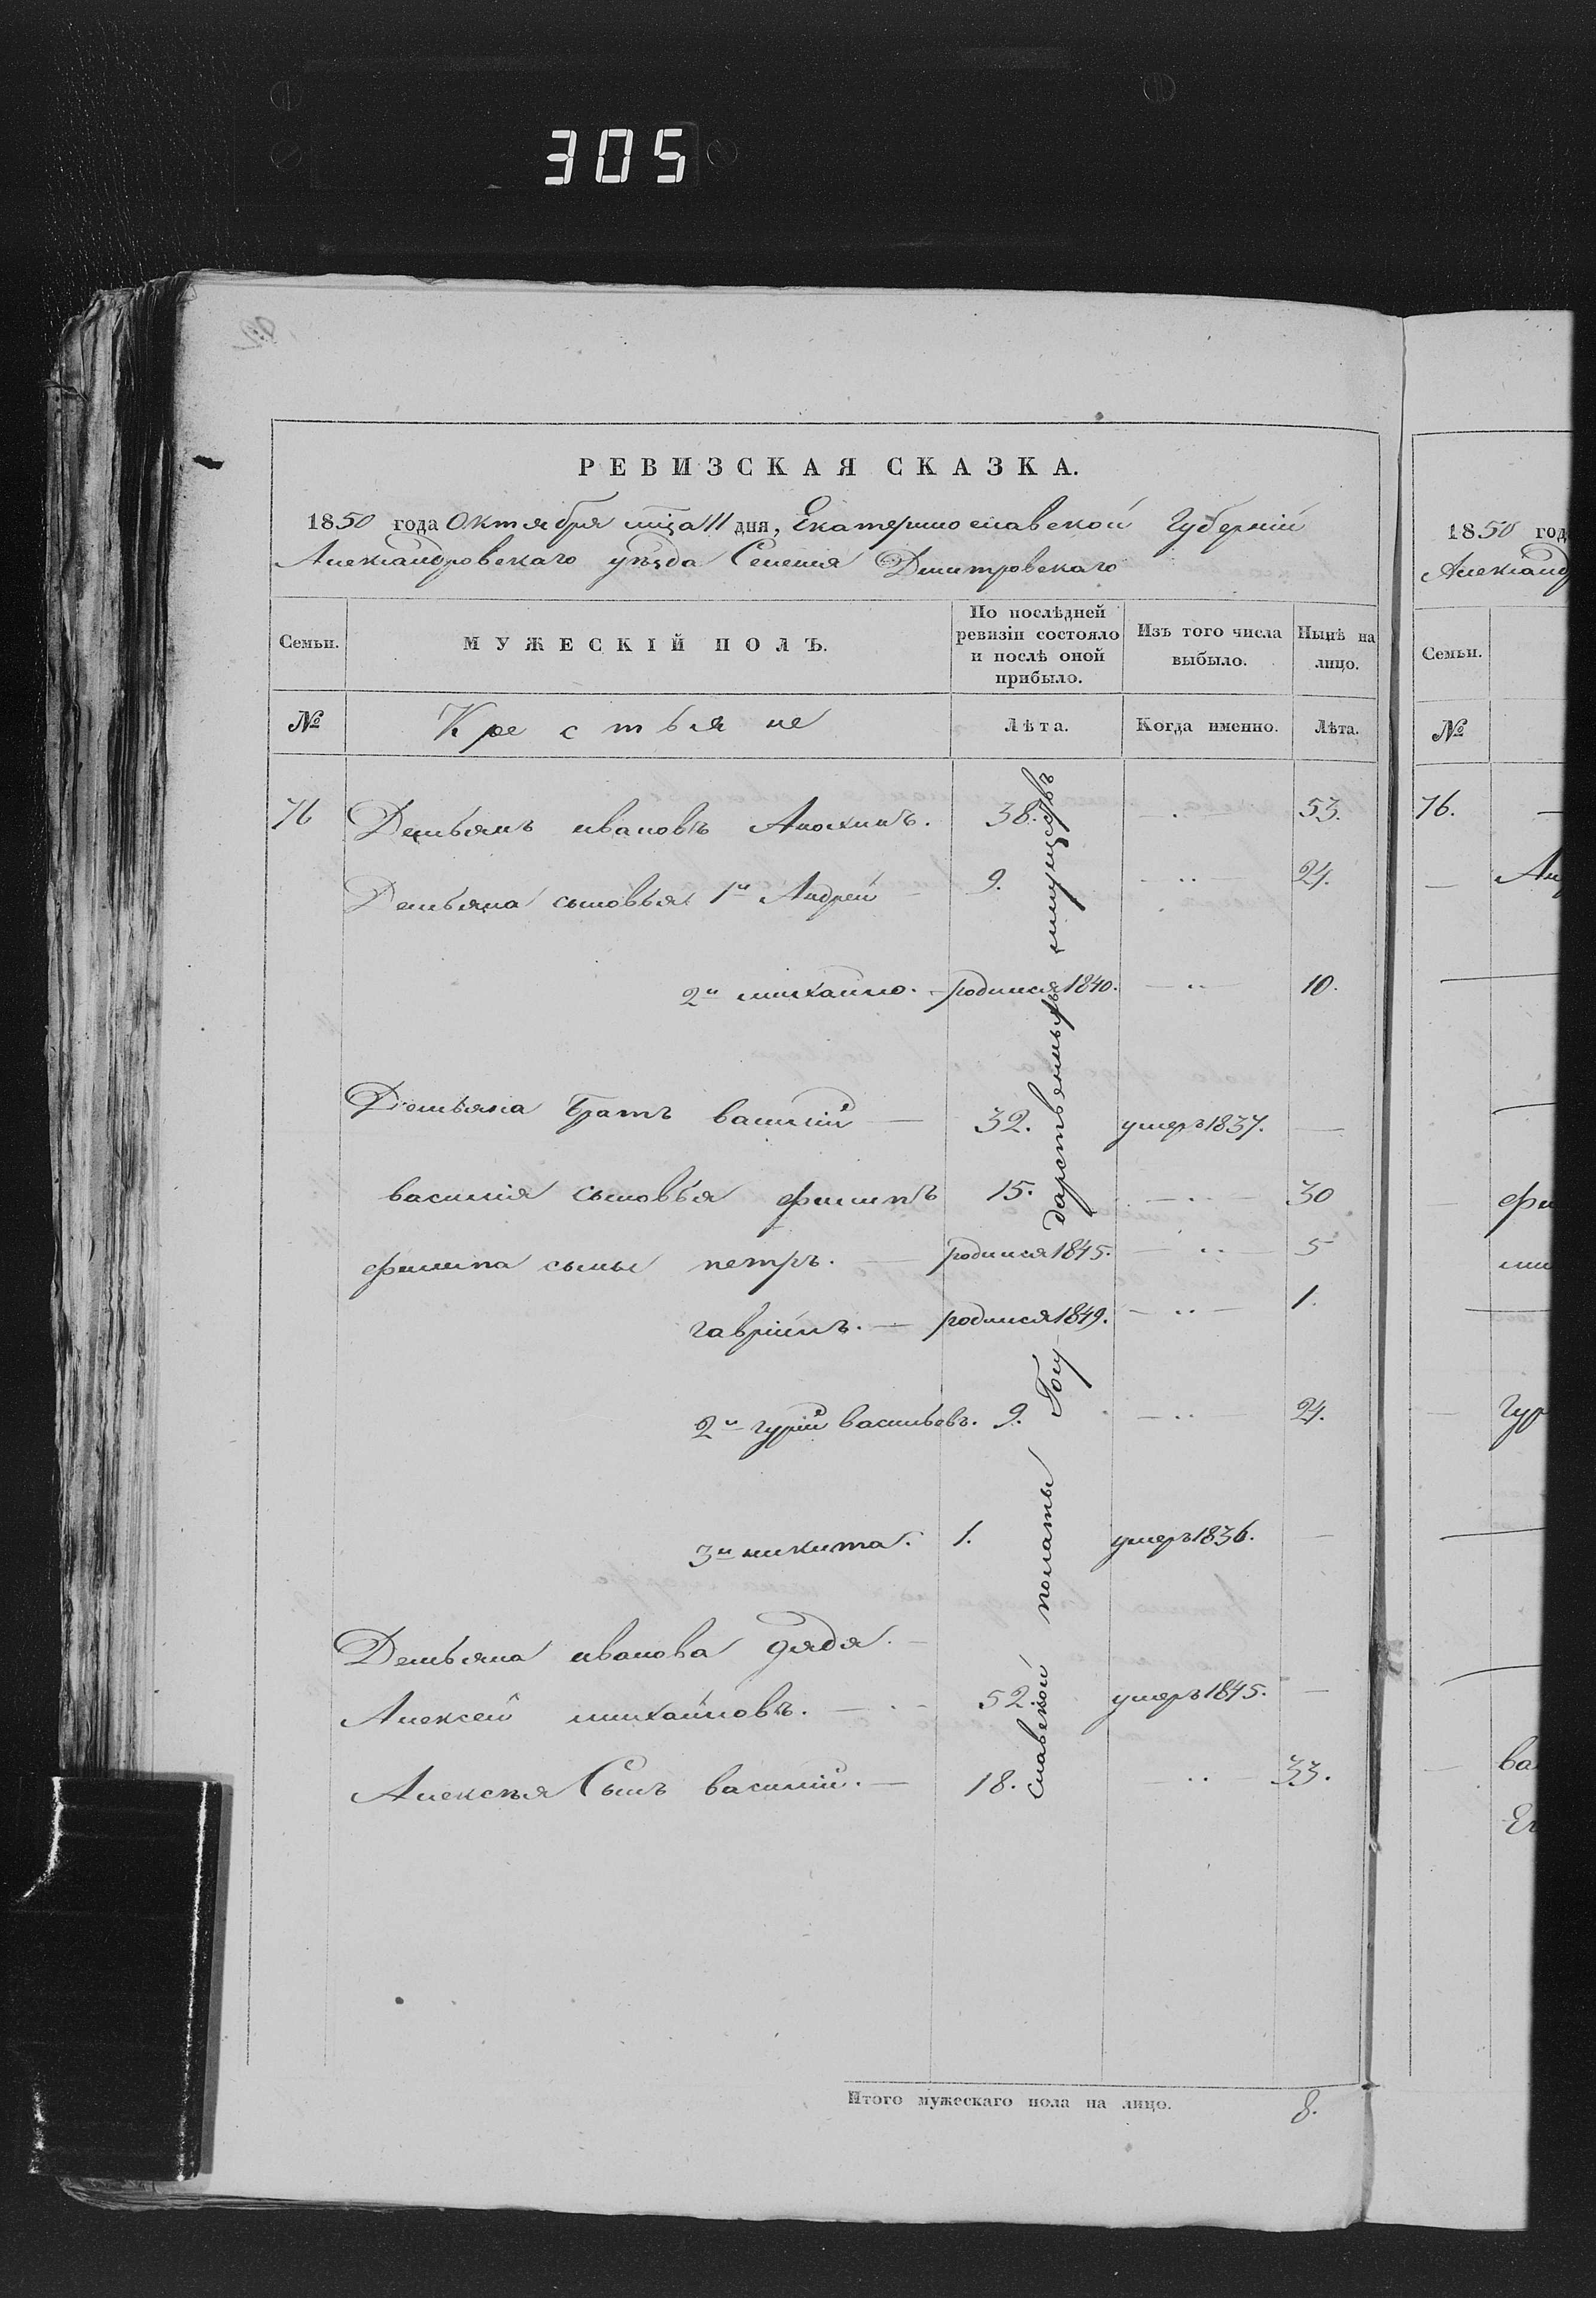 305
РЕВИЗСКАЯ СКАЗКА.
1850 года Октября мца 11 дня, Екатеринославской Губерніи
Александровскаго уѣзда Селенія Дмитровскаго
Семьи. МУЖЕСКІЙ ПОЛЪ. По послѣдней ревизіи состояло и послѣ оной прибыло. Изъ того числа выбыло. Нынѣ на лицо.
№ Крестьяне Лѣта. Когда именно. Лѣта.
76 Демьянъ ивановъ Анохинъ. 38. 53.
Демьяна сыновья 1й Андрей 9. 24.
2й михайло. родился 1840. 10.
Демьяна братъ василій 32. умеръ 1837.
василія сыновья филипъ 15. 30
филипа сыны петръ. родился 1845. 5
гавріилъ. родился 1849. 1.
2й гурій васильевъ. 9. 24.
3й никита. 1. умеръ 1836.
Демьяна иванова дядя.
Алексей михайловъ. 52. умеръ 1845.
Алексѣя Сынъ василій. 18. 33.
славской полаты Госу
дарственныхъ имуществъ
Итого мужескаго пола на лицо. 8.
1850 год
Александ
Семьи.
№
76.
фи
гур
ва